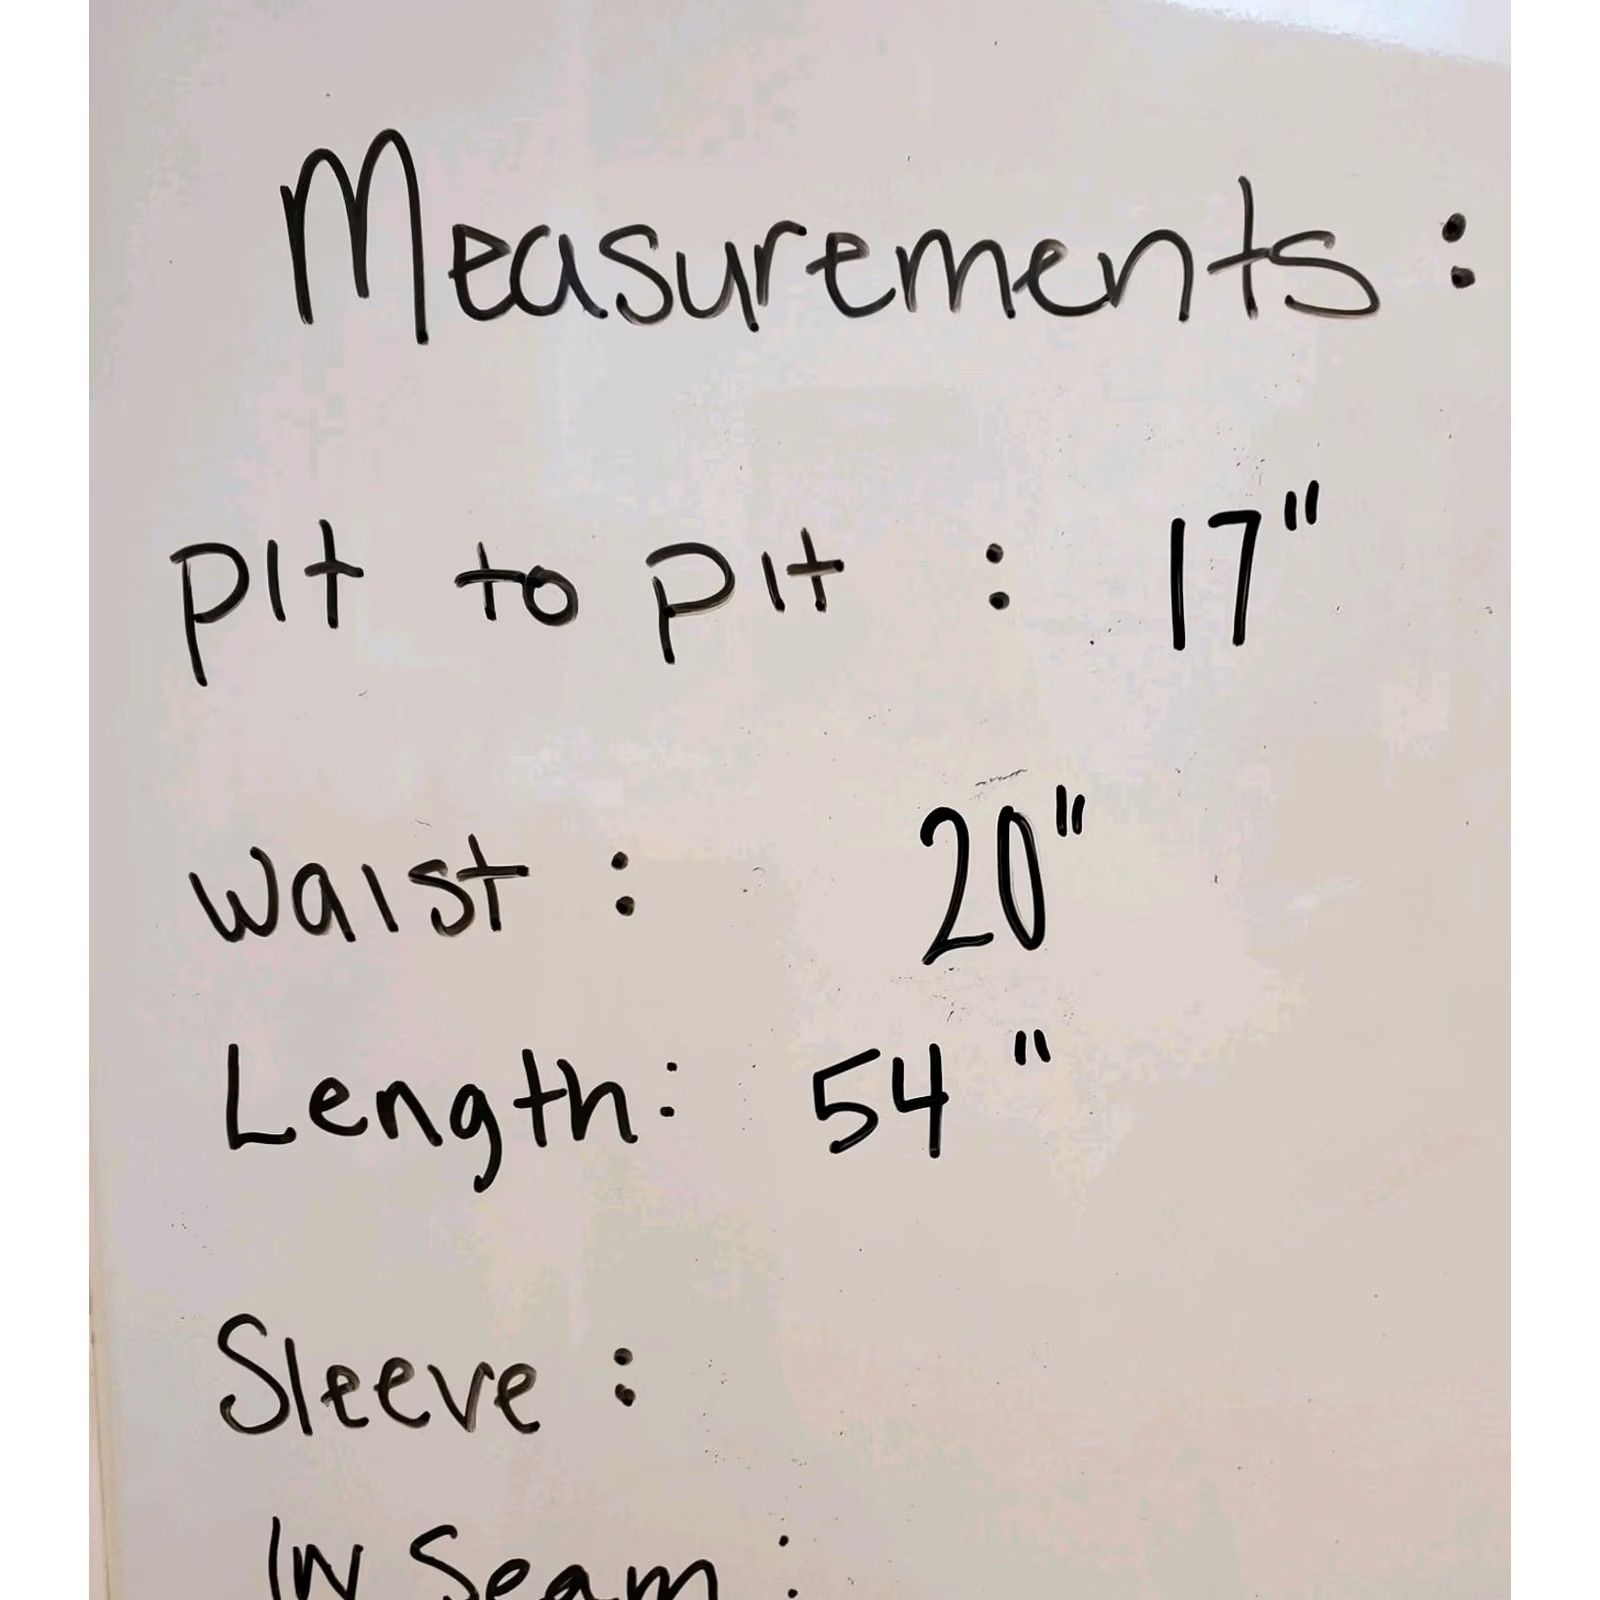 Measurements :
pit to pit : 17"
waist : 20"
Length: 54"
Sleeve :
In Seam :